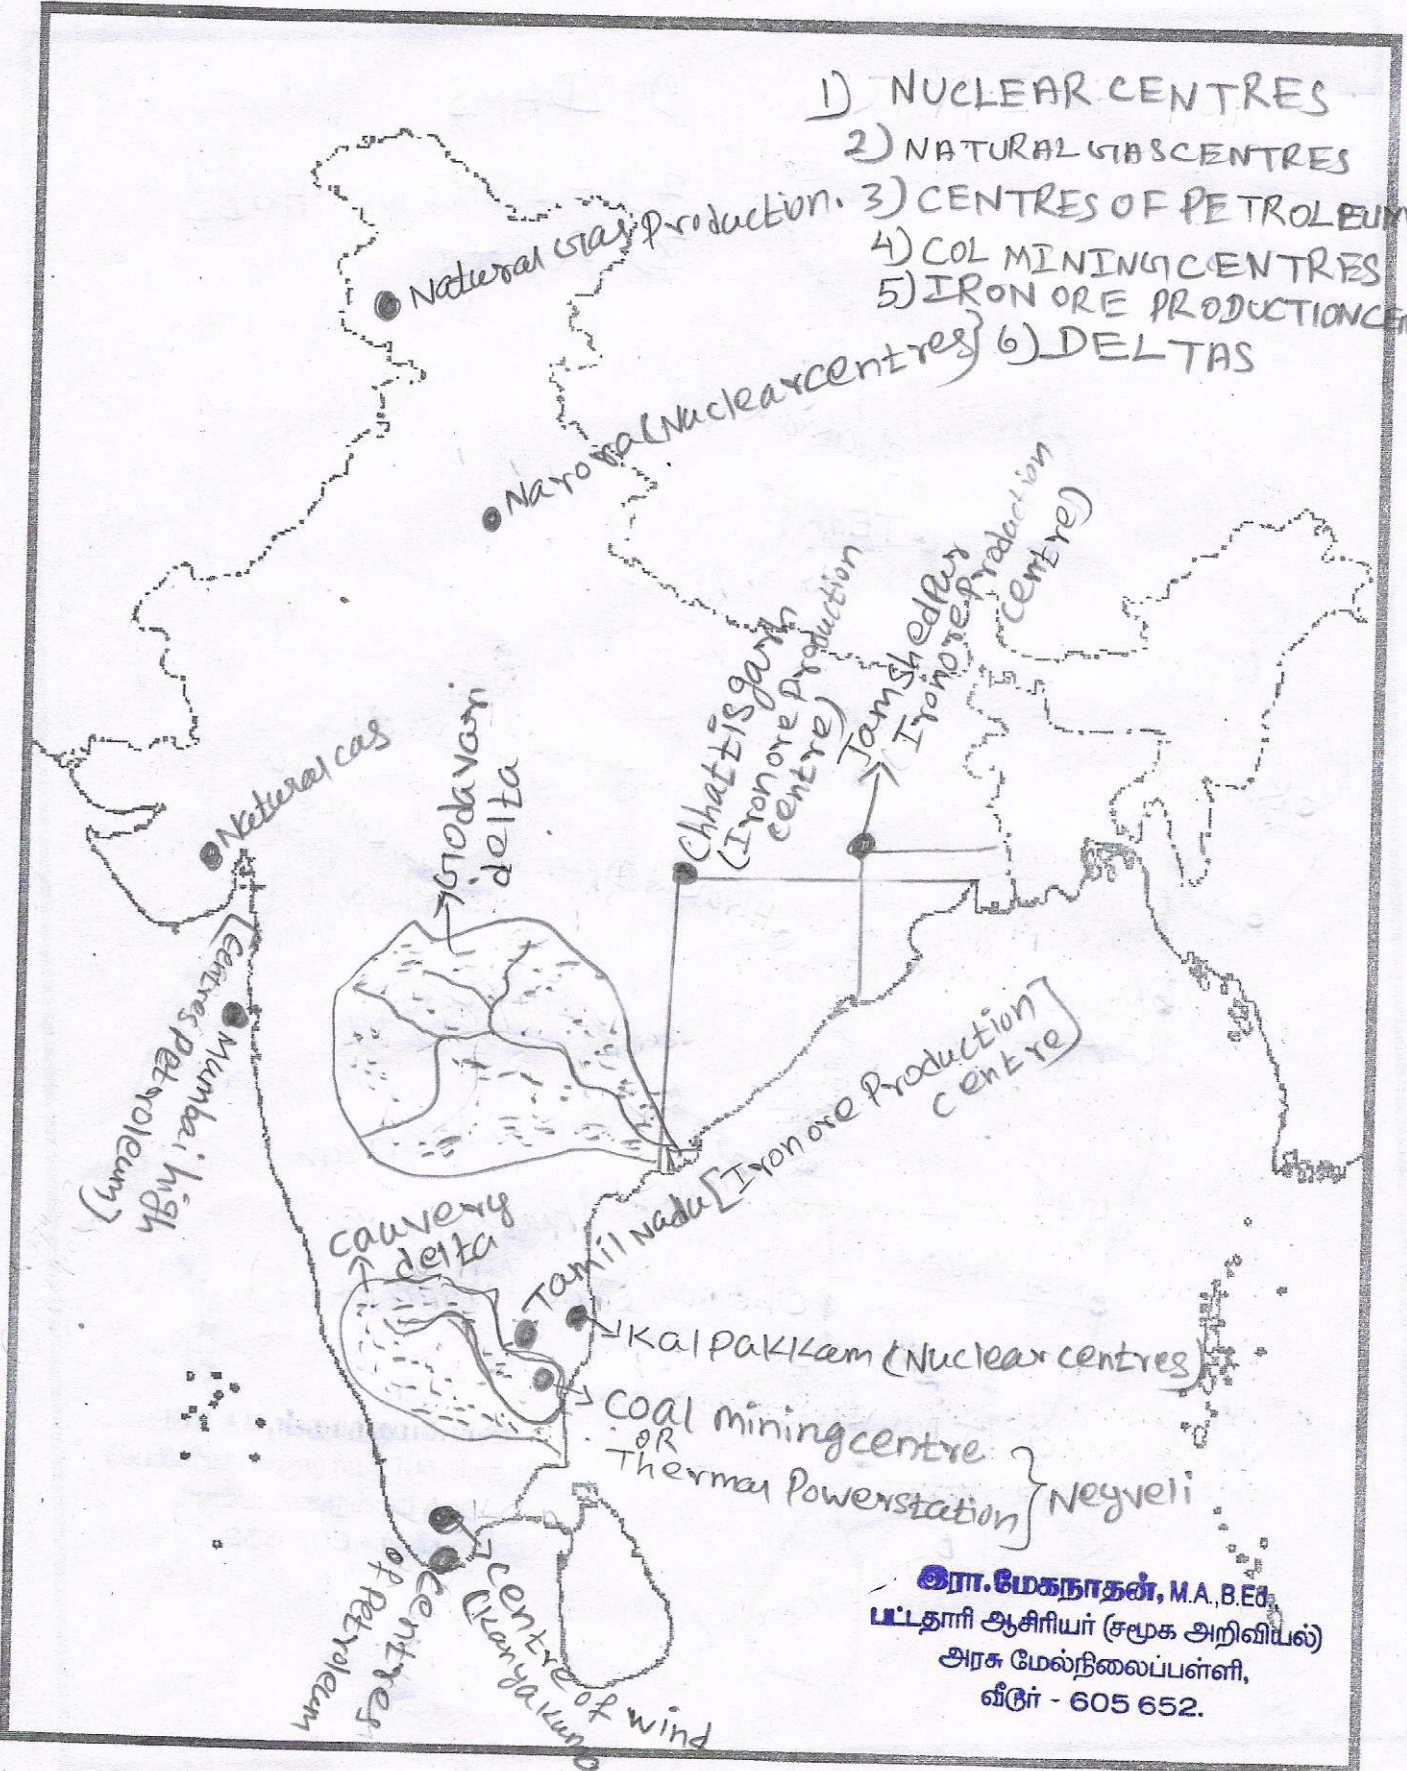 1) NUCLEAR CENTRES
2) NATURAL GAS CENTRES
3) CENTRES OF PETROLEUM
4) COL MINING CENTRES
5) IRON ORE PRODUCTION
6) DELTAS
Natural Gas Production.
Narora (Nuclear centres)
Chhattisgarh
(Iron ore Production
centre)
Jamshedpur
(Iron ore Production
centre)
Godavari
delta
Natural cas
[Centres Petroleum)
Mumbai high
Tamil Nadu [Iron ore Production
centre]
Cauvery
delta
Kalpakkam (Nuclear centres)
Coal mining centre
OR
Thermal Powerstation } Neyveli
Centre of wind
Centres
of Petroleum
இரா.மேகநாதன், M.A.,B.Ed.,
பட்டதாரி ஆசிரியர் (சமூக அறிவியல்)
அரசு மேல்நிலைப்பள்ளி,
வீடூர் - 605 652.